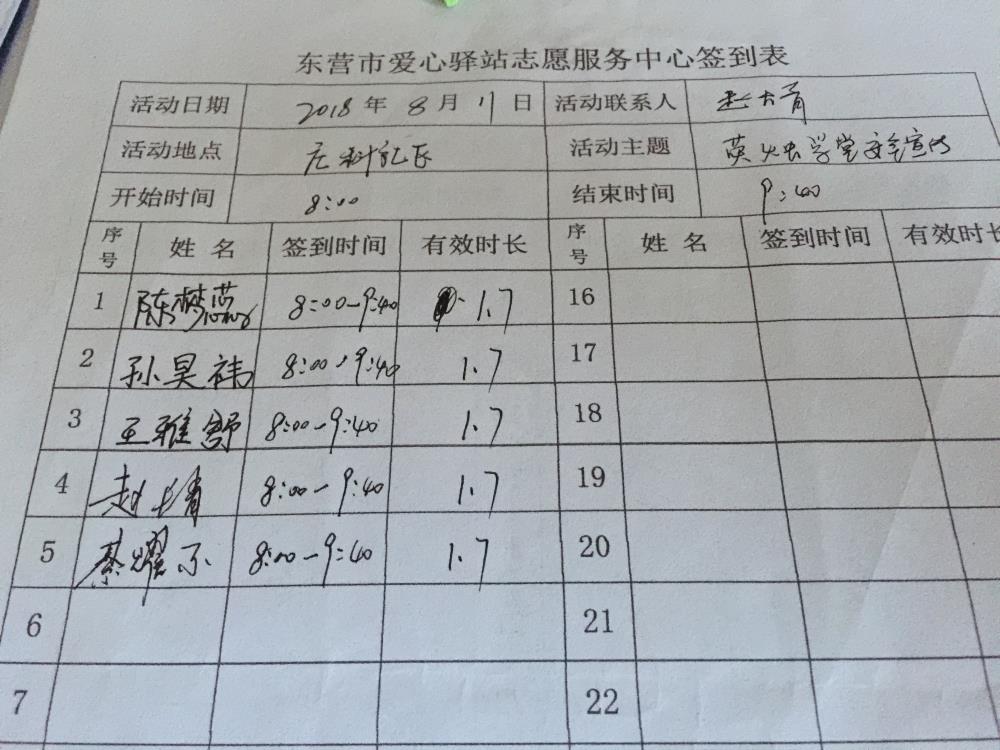 东营市爱心驿站志愿服务中心签到表
活动日期 2018年8月11日 活动联系人
活动地点 活动主题 萤火虫学堂安全宣传
开始时间 8:00 结束时间 9:40
序号 姓名 签到时间 有效时长 序号 姓名 签到时间 有效时长
1 陈梦蕊 8:00-9:40 1.7 16
2 孙昊祎 8:00-9:40 1.7 17
3 王雅舒 8:00-9:40 1.7 18
4 8:00-9:40 1.7 19
5 8:00-9:40 1.7 20
6 21
7 22